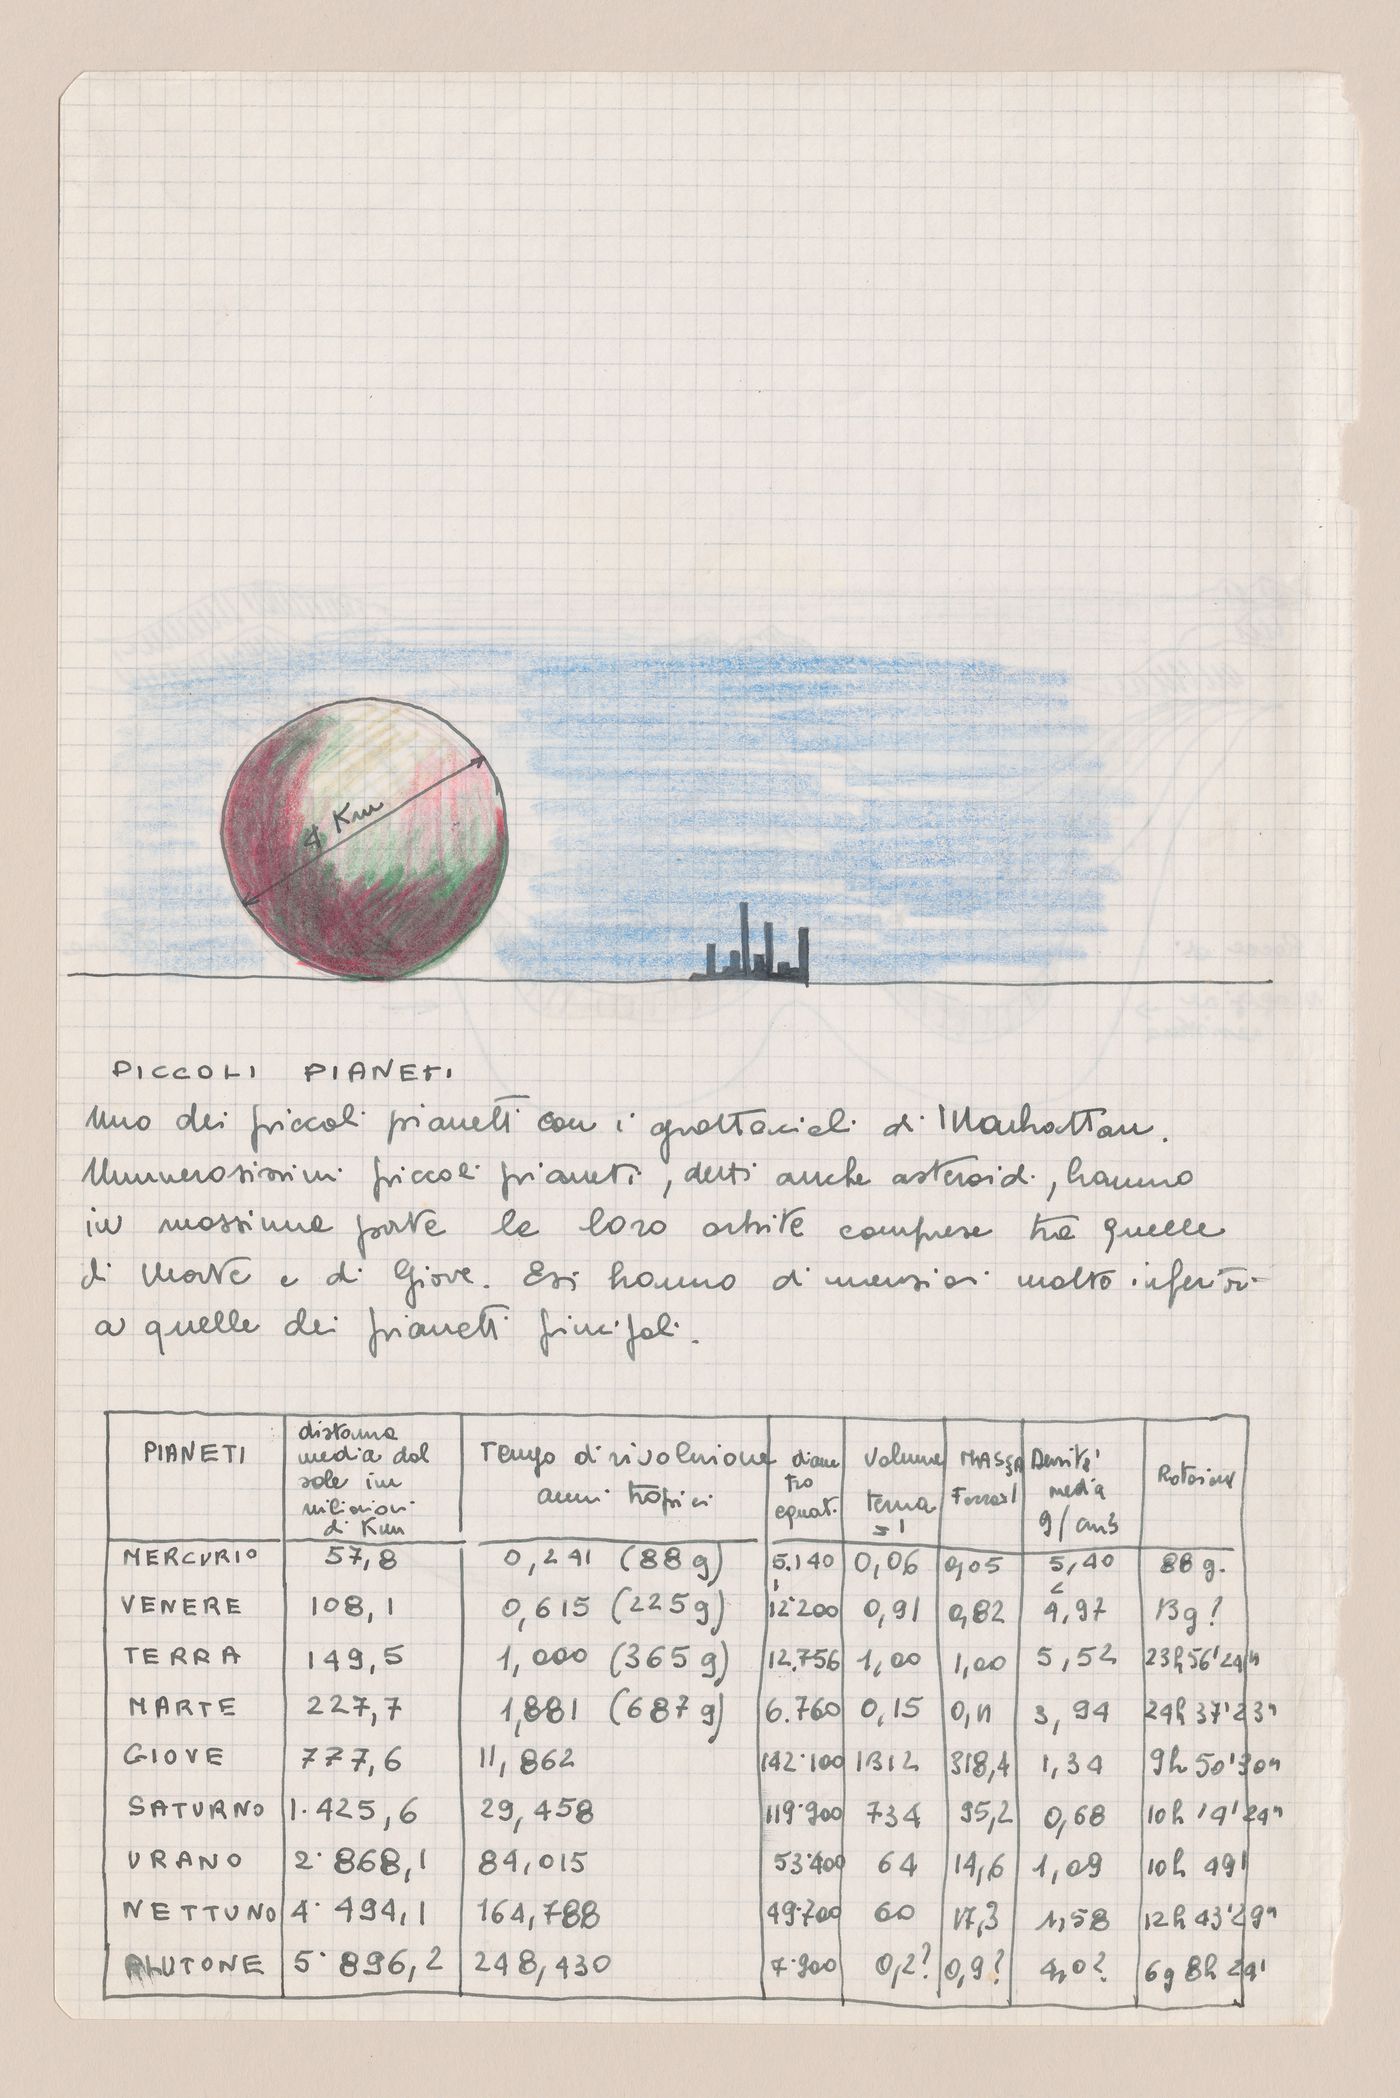 4 Km
PICCOLI PIANETI
Uno dei piccoli pianetti con i grattacieli di Manhattan.
Numerosissimi piccoli pianeti, detti anche asteroidi, hanno
in massima parte le loro orbite comprese tra quelle
di Marte e di Giove. Essi hanno dimensioni molto inferiori
a quelle dei pianetti principali.
PIANETI distanza media dal sole in milioni di Km Tempo di rivoluzione anni tropici diametro equat. Volume terra =1 MASSA Terra=1 Densità media g/cm3 Rotazione
MERCURIO 57,8 0,241 (88 g) 5.140 0,06 0,05 5,40 88 g.
VENERE 108,1 0,615 (225 g) 12'200 0,91 0,82 4,97 13 g?
TERRA 149,5 1,000 (365 g) 12.756 1,00 1,00 5,52 23h 56' 24"
MARTE 227,7 1,881 (687 g) 6.760 0,15 0,11 3,94 24h 37' 23"
GIOVE 777,6 11,862 142'100 1312 318,4 1,34 9h 50' 30"
SATURNO 1.425,6 29,458 119'900 734 95,2 0,68 10h 14' 24"
URANO 2'868,1 84,015 53'400 64 14,6 1,09 10h 49'
NETTUNO 4'494,1 164,788 49'700 60 17,3 1,58 12h 43' 29"
PLUTONE 5'896,2 248,430 0,2? 0,9? 4,0? 6g 8h 24'